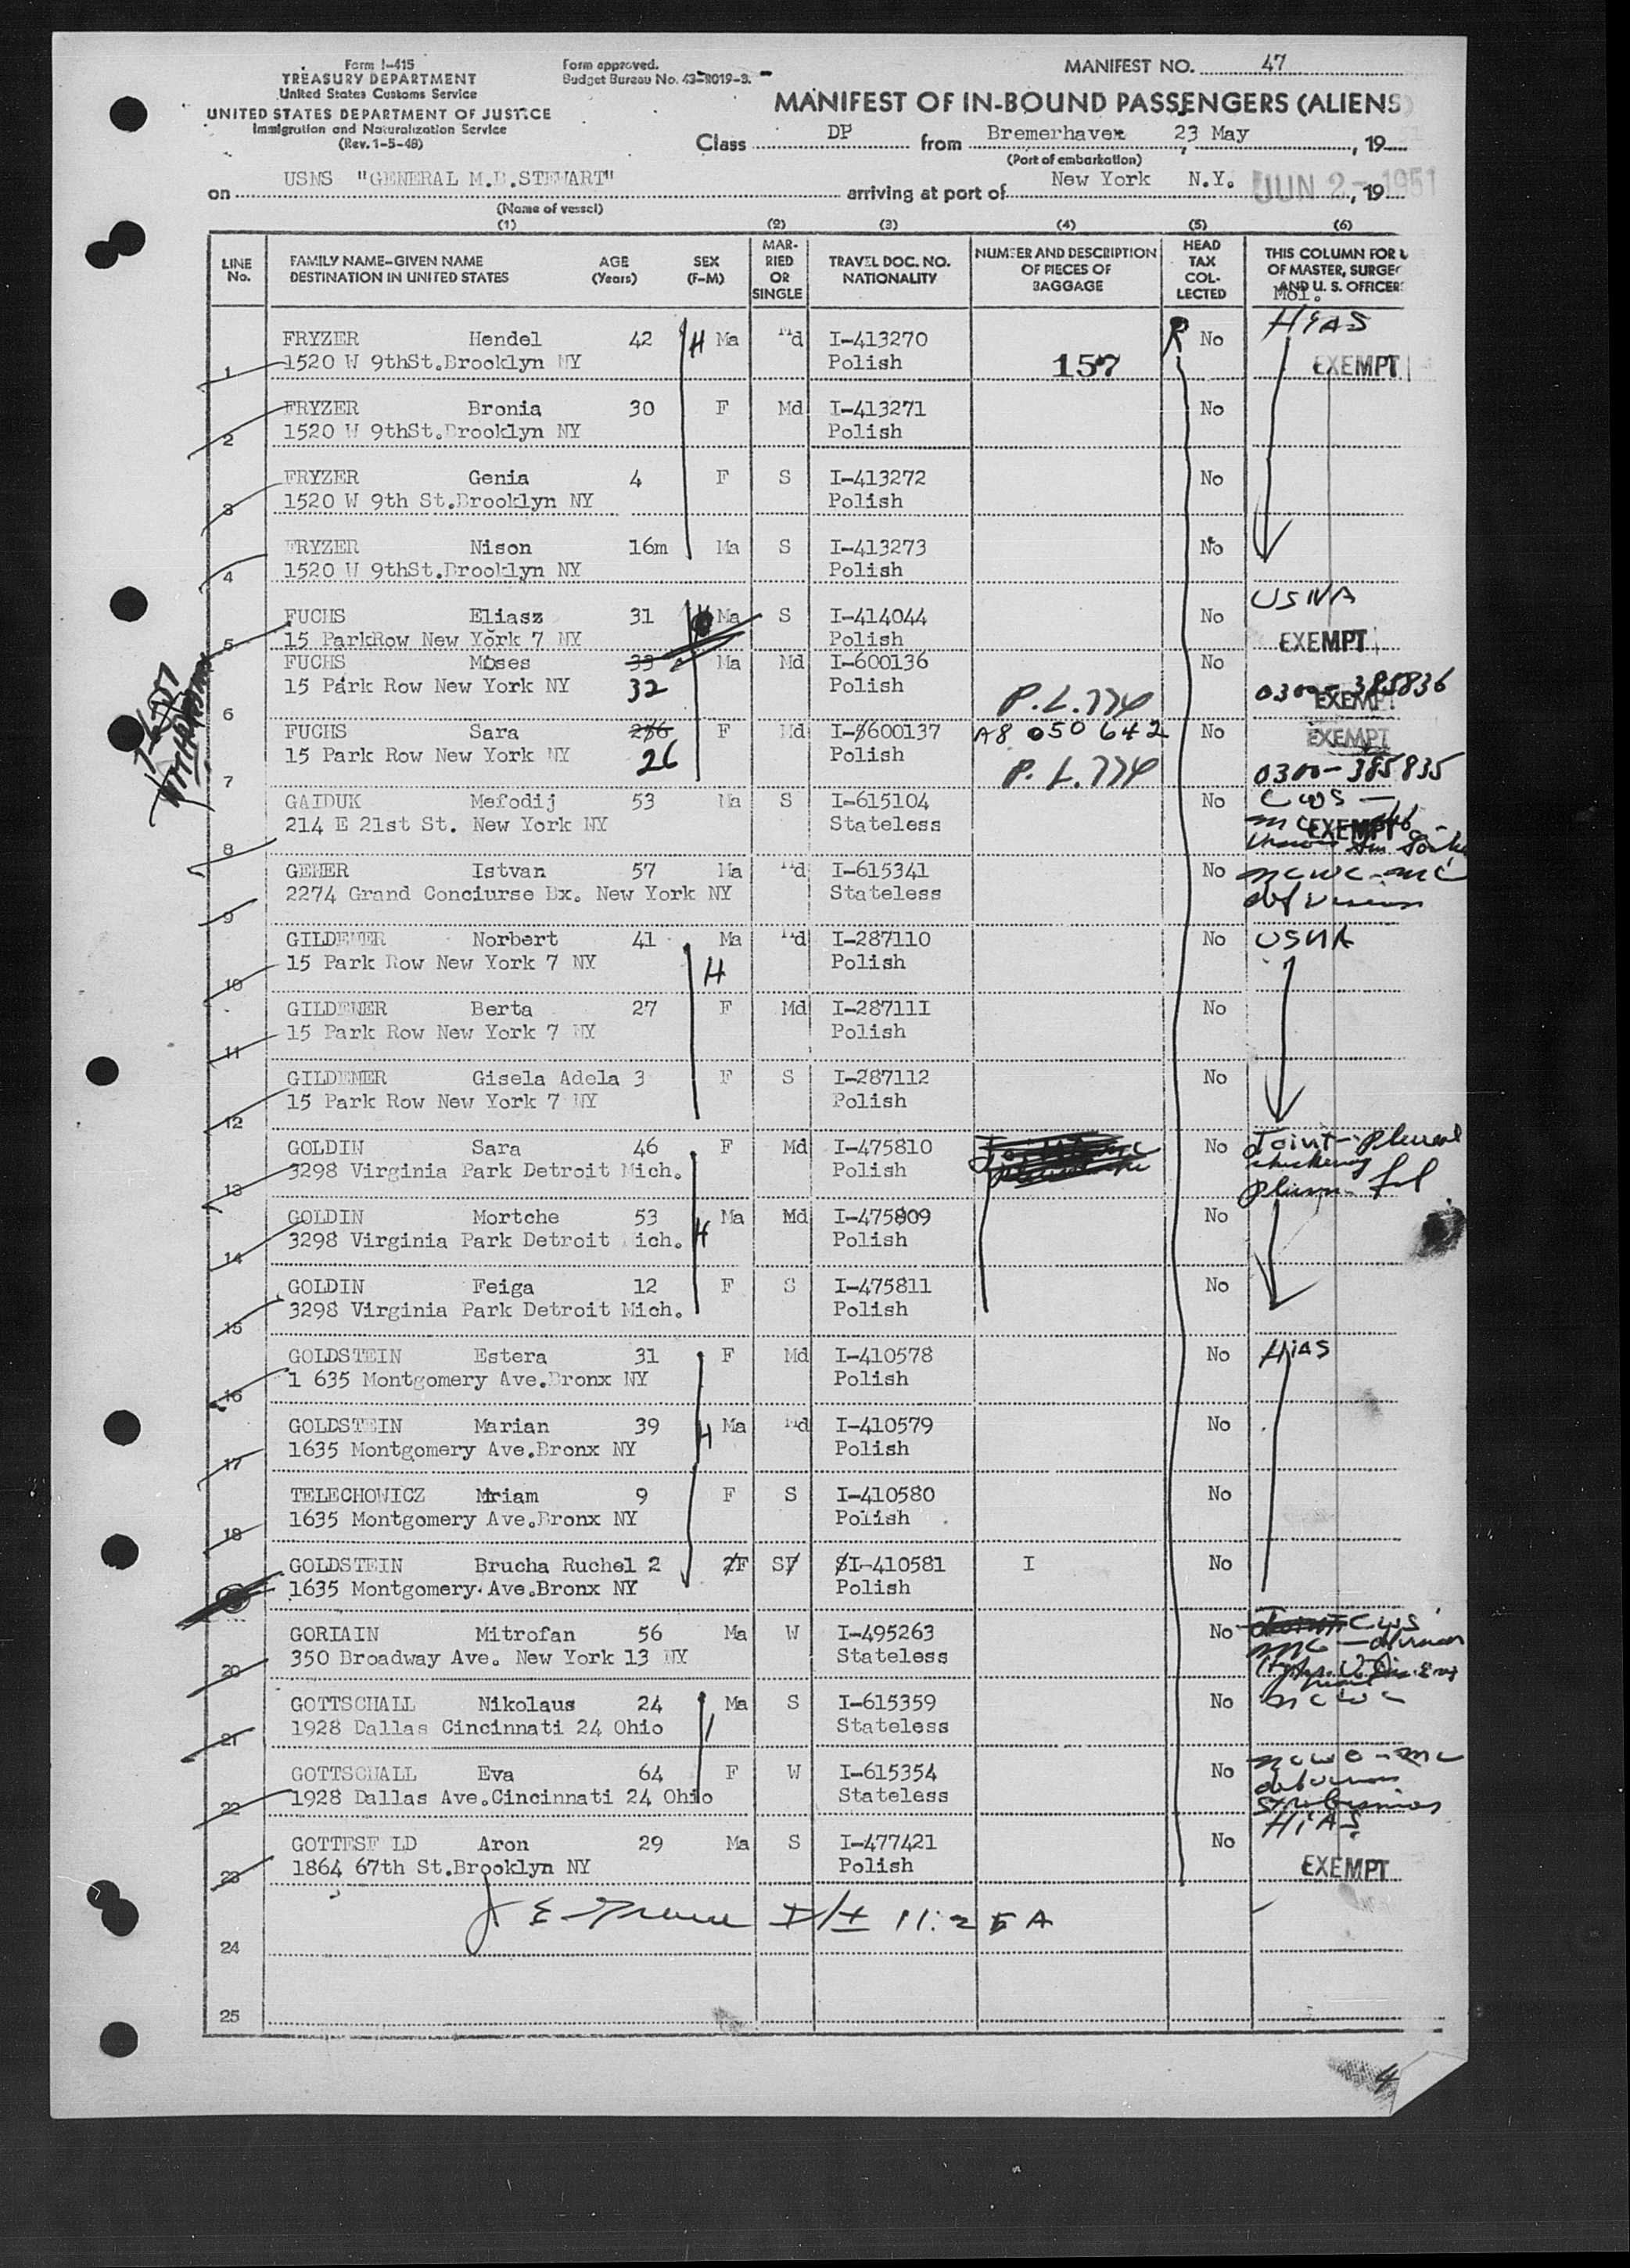 Form I-415
TREASURY DEPARTMENT
United States Customs Service
UNITED STATES DEPARTMENT OF JUSTICE
Immigration and Naturalization Service
(Rev. 1-5-48)
Form approved.
Budget Bureau No. 43-R019-3.
MANIFEST NO. 47
MANIFEST OF IN-BOUND PASSENGERS (ALIENS)
Class DP from Bremerhaven, 23 May, 19
(Port of embarkation)
on USNS "GENERAL M.B.STEWART" arriving at port of New York N.Y. JUN 2 - 1951, 19
(Name of vessel)
(1) (2) (3) (4) (5) (6)
LINE No. FAMILY NAME-GIVEN NAME DESTINATION IN UNITED STATES AGE (Years) SEX (F-M) MARRIED OR SINGLE TRAVEL DOC. NO. NATIONALITY NUMBER AND DESCRIPTION OF PIECES OF BAGGAGE HEAD TAX COLLECTED THIS COLUMN FOR U OF MASTER, SURGEO AND U. S. OFFICERS
FRYZER Hendel 42 H Ma Md I-413270 R No HIAS
1 1520 W 9thSt.Brooklyn NY Polish 157 EXEMPT
FRYZER Bronia 30 F Md I-413271 No
2 1520 W 9thSt.Brooklyn NY Polish
FRYZER Genia 4 F S I-413272 No
3 1520 W 9th St.Brooklyn NY Polish
FRYZER Nison 16m Ma S I-413273 No
4 1520 W 9thSt.Brooklyn NY Polish
FUCHS Eliasz 31 Ma S I-414044 No USNA
5 15 ParkRow New York 7 NY Polish EXEMPT
FUCHS Moses 33 Ma Md I-600136 No
6 15 Park Row New York NY 32 Polish P.L.774 0300-385836 EXEMPT
FUCHS Sara 286 F Md I-8600137 A8 050 642 No EXEMPT
7 15 Park Row New York NY 26 Polish P.L.774 0300-385835
GAIDUK Mefodij 53 Ma S I-615104 No CWS
8 214 E 21st St. New York NY Stateless EXEMPT
GEMER Istvan 57 Ma Md I-615341 No NCWC-MC
9 2274 Grand Conciurse Bx. New York NY Stateless def vision
GILDENER Norbert 41 Ma Md I-287110 No USNA
10 15 Park Row New York 7 NY H Polish
GILDENER Berta 27 F Md I-287111 No
11 15 Park Row New York 7 NY Polish
GILDEMER Gisela Adela 3 F S I-287112 No
12 15 Park Row New York 7 NY Polish
GOLDIN Sara 46 F Md I-475810 No Joint-Plural
13 3298 Virginia Park Detroit Mich. Polish
GOLDIN Mortche 53 Ma Md I-475809 No
14 3298 Virginia Park Detroit ich. H Polish
GOLDIN Feiga 12 F S I-475811 No
15 3298 Virginia Park Detroit Mich. Polish
GOLDSTEIN Estera 31 F Md I-410578 No HIAS
16 1 635 Montgomery Ave.Bronx NY Polish
GOLDSTEIN Marian 39 H Ma Md I-410579 No
17 1635 Montgomery Ave.Bronx NY Polish
TELECHOWICZ Mriam 9 F S I-410580 No
18 1635 Montgomery Ave.Bronx NY Polish
GOLDSTEIN Brucha Ruchel 2 2F SF SI-410581 I No
1635 Montgomery Ave.Bronx NY Polish
GORIAIN Mitrofan 56 Ma W I-495263 No CWS
20 350 Broadway Ave. New York 13 NY Stateless
GOTTSCHALL Nikolaus 24 Ma S I-615359 No NCWC
21 1928 Dallas Cincinnati 24 Ohio Stateless
GOTTSCHALL Eva 64 F W I-615354 No NCWC-MC
22 1928 Dallas Ave.Cincinnati 24 Ohio Stateless
GOTTESF LD Aron 29 Ma S I-477421 No HIAS
23 1864 67th St.Brooklyn NY Polish EXEMPT
11:25 A
24
25
4